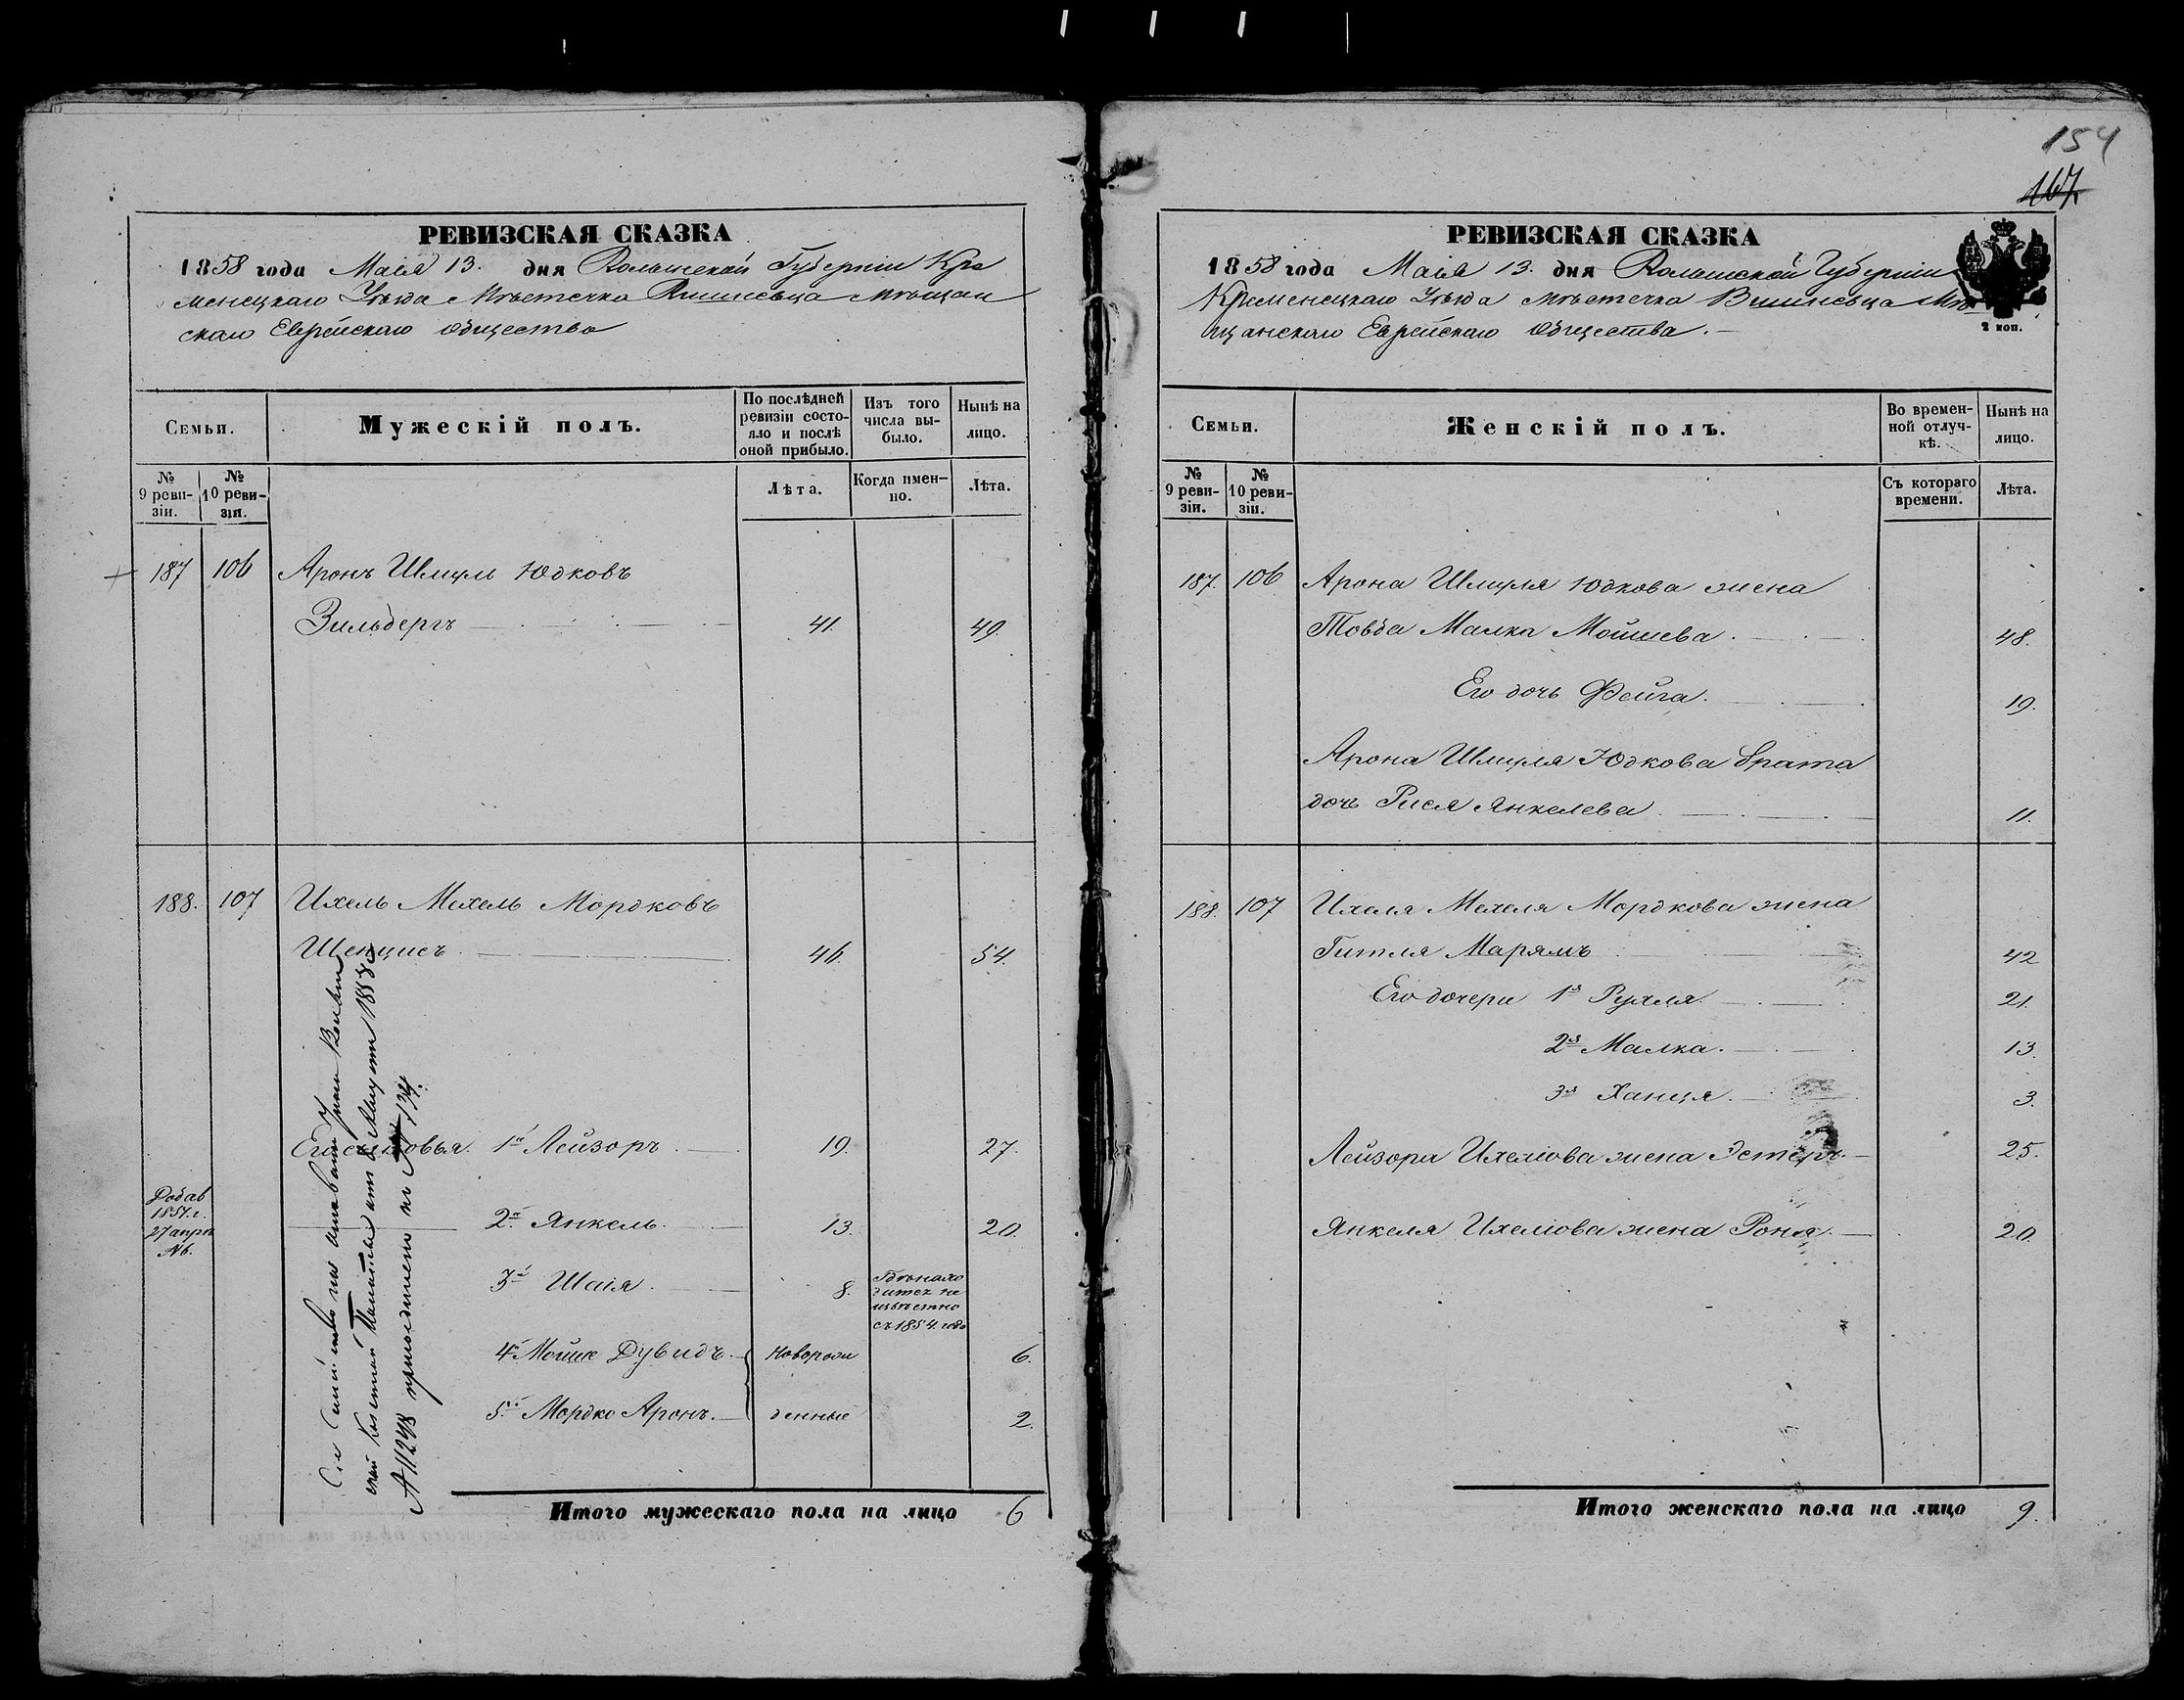 РЕВИЗСКАЯ СКАЗКА
1858 года Маія 13. дня Волынской Губерніи Кре
менецкаго Уѣзда Мѣстечка Вишневца Мѣщан
скаго Еврейскаго общества
Семьи.
Мужескій полъ.
По послѣдней ревизіи состояло и послѣ оной прибыло.
Изъ того числа выбыло.
Нынѣ на лицо.
№ 9 ревизіи.
№ 10 ревизіи.
Лѣта.
Когда именно.
Лѣта.
187 106 Аронъ Шмуль Юдковъ
Зильбергъ 41. 49.
188. 107 Ихель Мехель Мордковъ
46. 54.
Его сыновья. 1й Лейзоръ 19. 27.
Добав
1857. г.
27 апрѣ
№6.
2й Янкель. 13. 20.
3й Шаія. 8.
Гдѣ нахо
дитсь не
извѣстно
съ 1854. года
4й Мошке Дувидъ. Новорож 6.
5й Мордко Аронъ. денные 2.
№ 11248
Итого мужескаго пола на лицо 6
154
167
РЕВИЗСКАЯ СКАЗКА
1858 года Маія 13. дня Волынской Губерніи
Кременецкаго Уѣзда Мѣстечка Вишневца Мѣ
щанскаго Еврейскаго общества.
2 коп.
Семьи.
Женскій полъ.
Во временной отлучкѣ.
Нынѣ на лицо.
№ 9 ревизіи.
№ 10 ревизіи.
Съ котораго времени.
Лѣта.
187. 106 Арона Шмуля Юдкова жена
Товба Малка Мошкева. 48.
Его дочь Фейга. 19.
Арона Шмуля Юдкова брата
дочь Рися Янкелева 11.
188. 107 Ихеля Мехеля Мордкова жена
Гитля Марямъ 42
Его дочери 1я Рухля 21.
2я Малка. 13.
3я Ханця. 3.
Лейзора Ихеліова жена Эстеръ. 25.
Янкеля Ихеліова жена Роня. 20.
Итого женскаго пола на лицо 9.